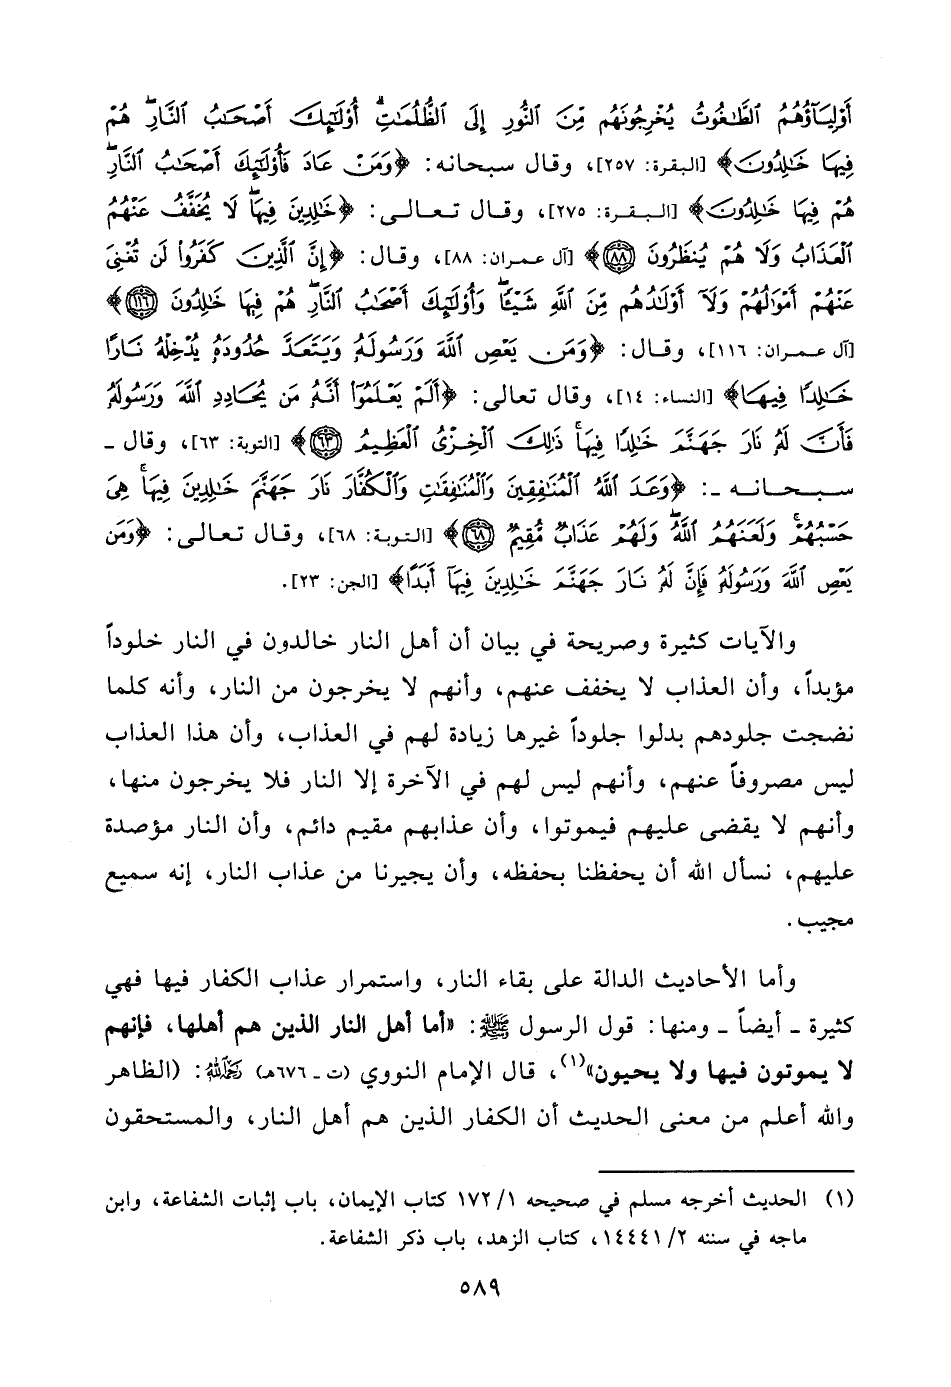 أَوْلِيَآؤُهُمُ ٱلطَّـٰغُوتُ يُخْرِجُونَهُم مِّنَ ٱلنُّورِ إِلَى ٱلظُّلُمَـٰتِۗ أُوْلَـٰٓئِكَ أَصْحَـٰبُ ٱلنَّارِۖ هُمْ
فِيهَا خَـٰلِدُونَ﴾ [البقرة: ٢٥٧]، وقال سبحانه: ﴿وَمَنْ عَادَ فَأُوْلَـٰٓئِكَ أَصْحَـٰبُ ٱلنَّارِۖ
هُمْ فِيهَا خَـٰلِدُونَ﴾ [البقرة: ٢٧٥]، وقال تعالى: ﴿خَـٰلِدِينَ فِيهَاۖ لَا يُخَفَّفُ عَنْهُمُ
ٱلْعَذَابُ وَلَا هُمْ يُنظَرُونَ ٨٨﴾ [آل عمران: ٨٨]، وقال: ﴿إِنَّ ٱلَّذِينَ كَفَرُواْ لَن تُغْنِىَ
عَنْهُمْ أَمْوَٰلُهُمْ وَلَآ أَوْلَـٰدُهُم مِّنَ ٱللَّهِ شَيْـًٔاۖ وَأُوْلَـٰٓئِكَ أَصْحَـٰبُ ٱلنَّارِۖ هُمْ فِيهَا خَـٰلِدُونَ ١١٦﴾
[آل عمران: ١١٦]، وقال: ﴿وَمَن يَعْصِ ٱللَّهَ وَرَسُولَهُۥ وَيَتَعَدَّ حُدُودَهُۥ يُدْخِلْهُ نَارًا
خَـٰلِدًا فِيهَا﴾ [النساء: ١٤]، وقال تعالى: ﴿أَلَمْ يَعْلَمُوٓاْ أَنَّهُۥ مَن يُحَادِدِ ٱللَّهَ وَرَسُولَهُۥ
فَأَنَّ لَهُۥ نَارَ جَهَنَّمَ خَـٰلِدًا فِيهَاۚ ذَٰلِكَ ٱلْخِزْىُ ٱلْعَظِيمُ ٦٣﴾ [التوبة: ٦٣]، وقال ـ
سبحانه ـ: ﴿وَعَدَ ٱللَّهُ ٱلْمُنَـٰفِقِينَ وَٱلْمُنَـٰفِقَـٰتِ وَٱلْكُفَّارَ نَارَ جَهَنَّمَ خَـٰلِدِينَ فِيهَاۚ هِىَ
حَسْبُهُمْۚ وَلَعَنَهُمُ ٱللَّهُۖ وَلَهُمْ عَذَابٌ مُّقِيمٌ ٦٨﴾ [التوبة: ٦٨]، وقال تعالى: ﴿وَمَن
يَعْصِ ٱللَّهَ وَرَسُولَهُۥ فَإِنَّ لَهُۥ نَارَ جَهَنَّمَ خَـٰلِدِينَ فِيهَآ أَبَدًا﴾ [الجن: ٢٣].
والآيات كثيرة وصريحة في بيان أن أهل النار خالدون في النار خلوداً
مؤبداً، وأن العذاب لا يخفف عنهم، وأنهم لا يخرجون من النار، وأنه كلما
نضجت جلودهم بدلوا جلوداً غيرها زيادة لهم في العذاب، وأن هذا العذاب
ليس مصروفاً عنهم، وأنهم ليس لهم في الآخرة إلا النار فلا يخرجون منها،
وأنهم لا يقضى عليهم فيموتوا، وأن عذابهم مقيم دائم، وأن النار مؤصدة
عليهم، نسأل الله أن يحفظنا بحفظه، وأن يجيرنا من عذاب النار، إنه سميع
مجيب.
وأما الأحاديث الدالة على بقاء النار، واستمرار عذاب الكفار فيها فهي
كثيرة ـ أيضاً ـ ومنها: قول الرسول ﷺ: «أما أهل النار الذين هم أهلها، فإنهم
لا يموتون فيها ولا يحيون»(١)، قال الإمام النووي (ت ـ ٦٧٦هـ) رَحِمَهُ اللهُ: (الظاهر
والله أعلم من معنى الحديث أن الكفار الذين هم أهل النار، والمستحقون
(١) الحديث أخرجه مسلم في صحيحه ١٧٢/١ كتاب الإيمان، باب إثبات الشفاعة، وابن
ماجه في سننه ١٤٤٤١/٢، كتاب الزهد، باب ذكر الشفاعة.
٥٨٩